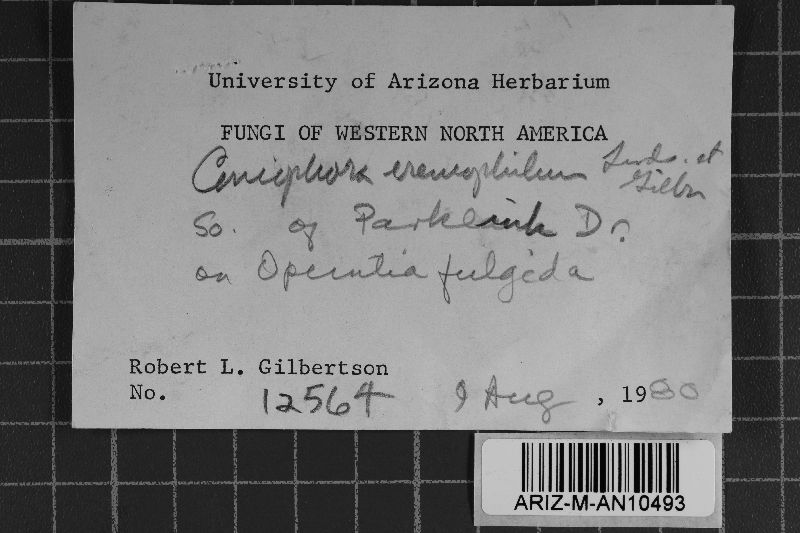 University of Arizona Herbarium
FUNGI OF WESTERN NORTH AMERICA
Coniophora eremophilum Linds. et Gilbn
So. of Parklink Dr.
on Opuntia fulgida
Robert L. Gilbertson
No. 12564 9 Aug , 1980
ARIZ-M-AN10493